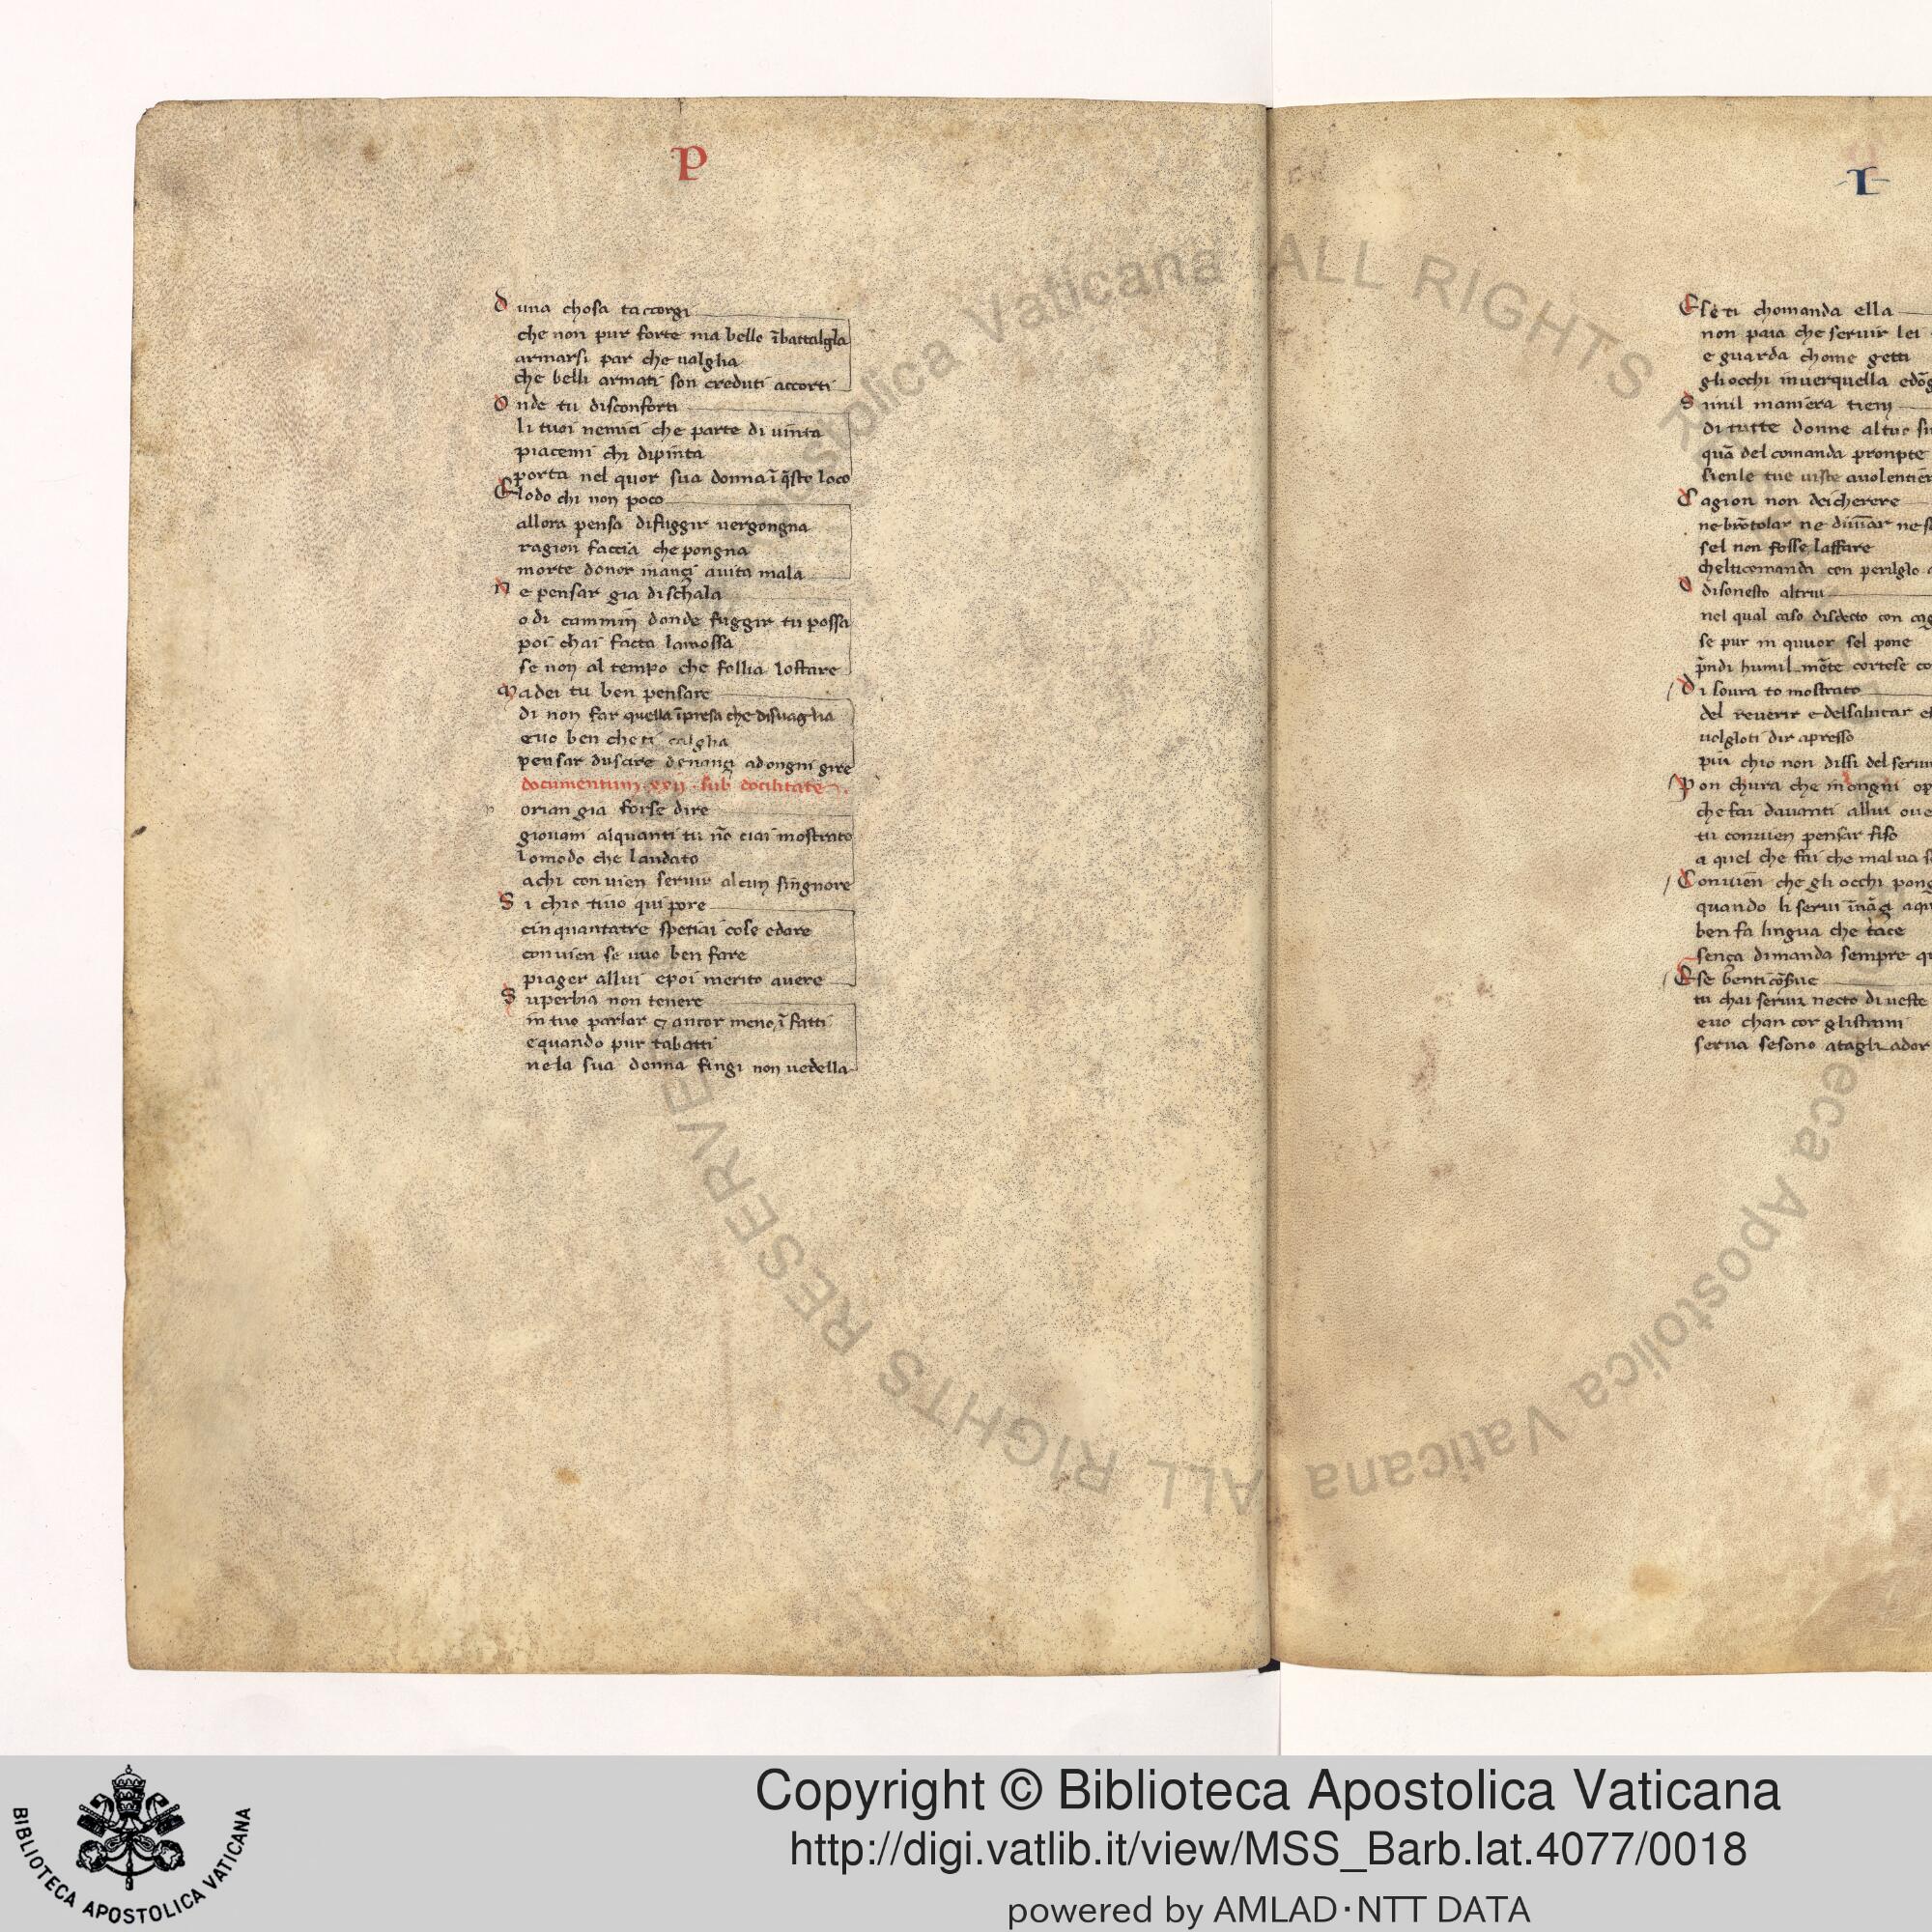 P
D una chosa taccorgi
che non pur forte ma bello ībattalgla
armarsi par che ualglia
che belli armati son creduti accorti
O nde tu disconforti
li tuoi nemici che parte di uinta
piacemi chi dipinta
porta nel quor sua donna ī q̄sto loco
E lodo chi non poco
allora pensa difuggir uergongna
ragion faccia che pongna
morte donor inançi auita mala
N e pensar gia di schala
o di cammin donde fuggir tu possa
poi chai facta lamossa
se non al tempo che follia lostare
M a dei tu ben pensare
di non far quella īpresa che disuaglia
euo ben che ti calglia
pensar duscire denançi adongni gire
documentum xxij sub docilitate
orian gia forse dire
giouani alquanti tu nō ciai mostrato
lomodo che laudato
a chi conuien seruir alcun singnore
S i chio tuio qui pore
cinquantatre spetiai cose edare
conuien se uuo ben fare
piager allui epoi merito auere
S uperbia non tenere
in tuo parlar & ancor meno ī fatti
equando pur tabatti
nela sua donna fingi non uedella
I
E se ti chomanda ella
non paia che seruir lei
e guarda chome getti
gli occhi inuerquella
S imil maniera tieni
di tutte donne altuo
quā del comanda pronpte
sienle tue uiste
C agion non dei cherere
ne brōtolar ne
sel non fosse laffare
chelticomanda con perilglo
O disonesto altrui
nel qual caso disdecto con
se pur in quuor sel pone
p̄ndi humil mēte cortese
D i soura to mostrato
del reuerir e delsalutar
uolgloti dir apresso
piu chio non dissi del
P on chura che inongni
che fai dauanti allui
tu conuien pensar fiso
a quel che fai che mal ua
C onuien che gli occhi
quando li serui īnāçi
ben fa lingua che tace
sença dimanda sempre
E se benti cōsiue
tu chai seruir necto di ueste
euo chan cor glistrum
serua sesono atagli
Copyright © Biblioteca Apostolica Vaticana
http://digi.vatlib.it/view/MSS_Barb.lat.4077/0018
powered by AMLAD·NTT DATA
BIBLIOTECA APOSTOLICA VATICANA
Apostolica Vaticana ALL RIGHTS RESERVED